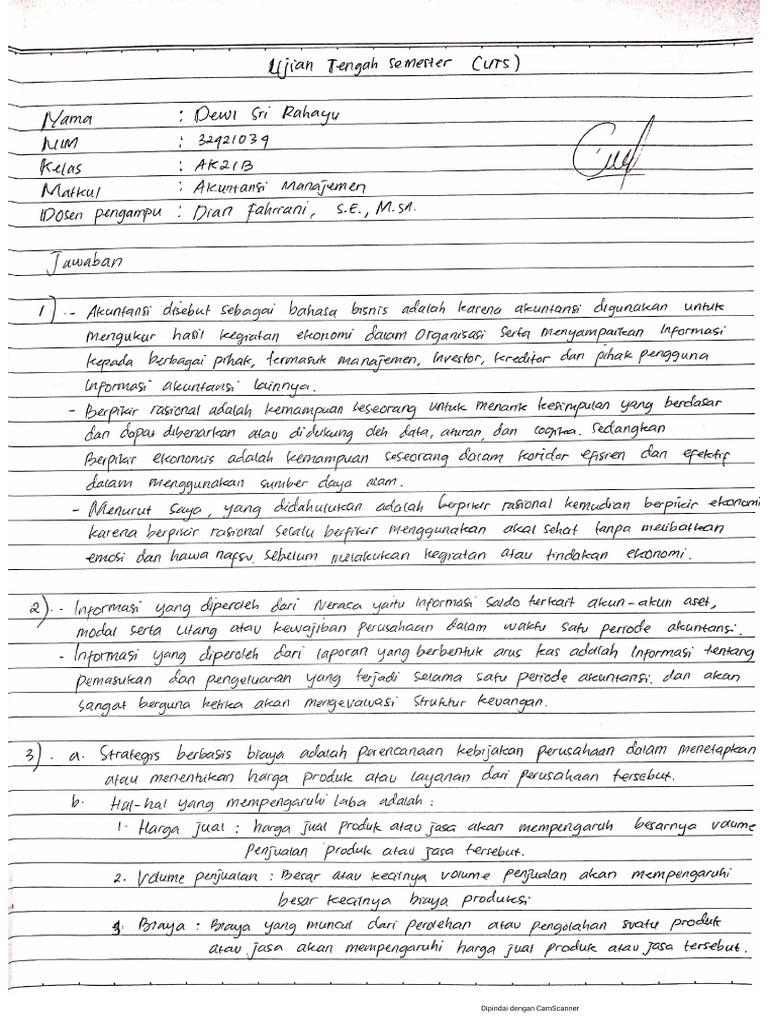 Ujian Tengah Semester (UTS)
Nama : Dewi Sri Rahayu
NIM : 32921039
Kelas : AK21B
Matkul : Akuntansi Manajemen
Dosen pengampu : Dian Fahriani, S.E., M.SA.
Jawaban
1). - Akuntansi disebut sebagai bahasa bisnis adalah karena akuntansi digunakan untuk
mengukur hasil kegiatan ekonomi dalam Organisasi serta menyampaikan Informasi
kepada berbagai pihak, termasuk manajemen, Investor, kreditor dan pihak pengguna
Informasi akuntansi lainnya.
- Berpikir rasional adalah kemampuan seseorang untuk menarik kesimpulan yang berdasar
dan dapat dibenarkan atau didukung oleh data, aturan, dan logika. Sedangkan
Berpikir ekonomis adalah kemampuan seseorang dalam koridor efisien dan efektif
dalam menggunakan sumber daya alam.
- Menurut saya, yang didahulukan adalah berpikir rasional kemudian berpikir ekonomi
karena berpikir rasional selalu berfikir menggunakan akal sehat tanpa melibatkan
emosi dan hawa nafsu. sebelum melakukan kegiatan atau tindakan ekonomi.
2). - Informasi yang diperoleh dari Neraca yaitu Informasi Saldo terkait akun-akun aset,
modal serta Utang atau kewajiban perusahaan dalam waktu satu periode akuntansi.
- Informasi yang diperoleh dari laporan yang berbentuk arus kas adalah Informasi tentang
pemasukan dan pengeluaran yang terjadi selama satu periode akuntansi. dan akan
sangat berguna ketika akan mengevaluasi Struktur keuangan.
3). a. Strategis berbasis biaya adalah perencanaan kebijakan perusahaan dalam menetapkan
atau menentukan harga produk atau layanan dari perusahaan tersebut.
b. Hal-hal yang mempengaruhi laba adalah :
1. Harga jual : harga jual produk atau jasa akan mempengaruh besarnya volume
Penjualan produk atau jasa tersebut.
2. Volume penjualan : Besar atau kecilnya volume penjualan akan mempengaruhi
besar kecilnya biaya produksi
3. Biaya : Biaya yang muncul dari perolehan atau pengolahan suatu produk
atau jasa akan mempengaruhi harga jual produk atau jasa tersebut.
Dipindai dengan CamScanner